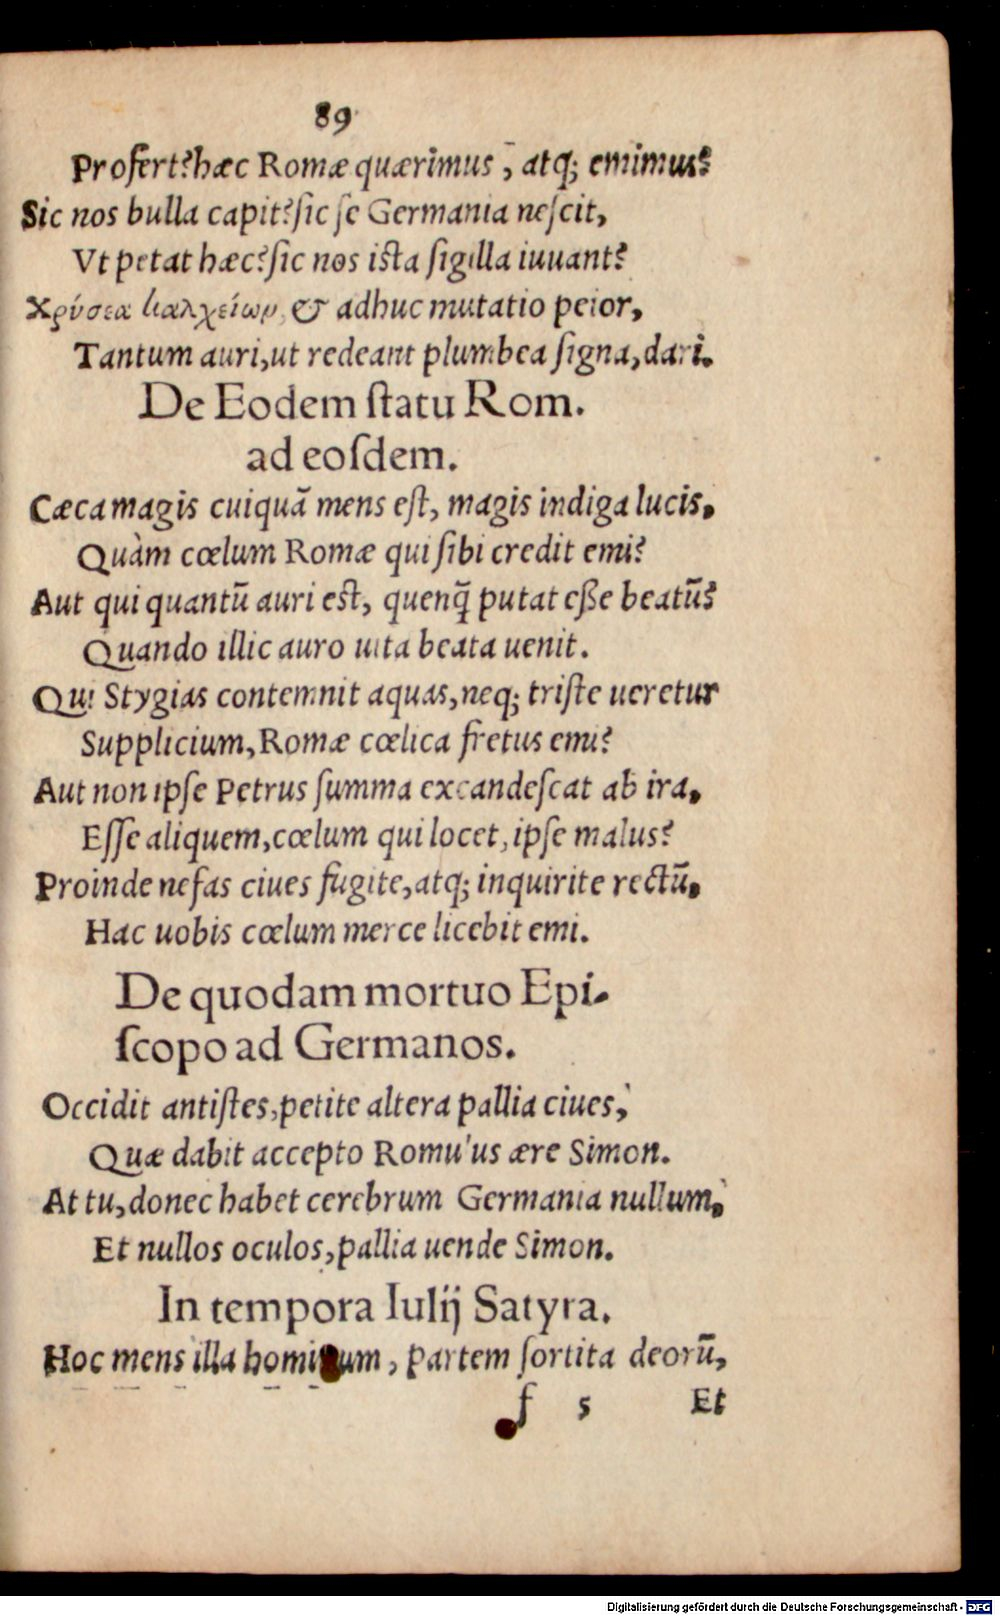 89
Profert?hæc Romæ quærimus, atq; emimus?
Sic nos bulla capit?sic se Germania nescit,
Vt petat hæc?sic nos ista sigilla iuuant?
Χρύσεα χαλχείωρ, & adhuc mutatio peior,
Tantum auri,ut redeant plumbea signa,dari.
De Eodem statu Rom.
ad eosdem.
Cæca magis cuiquã mens est, magis indiga lucis,
Quàm cœlum Romæ qui sibi credit emi?
Aut qui quantũ auri est, quenq̃ putat eße beatũ?
Quando illic auro uita beata uenit.
Qui Stygias contemnit aquas,neq; triste ueretur
Supplicium,Romæ cœlica fretus emi?
Aut non ipse Petrus summa excandescat ab ira,
Esse aliquem,cœlum qui locet,ipse malus?
Proinde nefas ciues fugite,atq; inquirite rectũ,
Hac uobis cœlum merce licebit emi.
De quodam mortuo Epi-
scopo ad Germanos.
Occidit antistes,petite altera pallia ciues,
Quæ dabit accepto Romulus ære Simon.
At tu,donec habet cerebrum Germania nullum,
Et nullos oculos,pallia uende Simon.
In tempora Iulij Satyra.
Hoc mens illa hominum, partem sortita deorũ,
f 5 Et
Digitalisierung gefördert durch die Deutsche Forschungsgemeinschaft - DFG